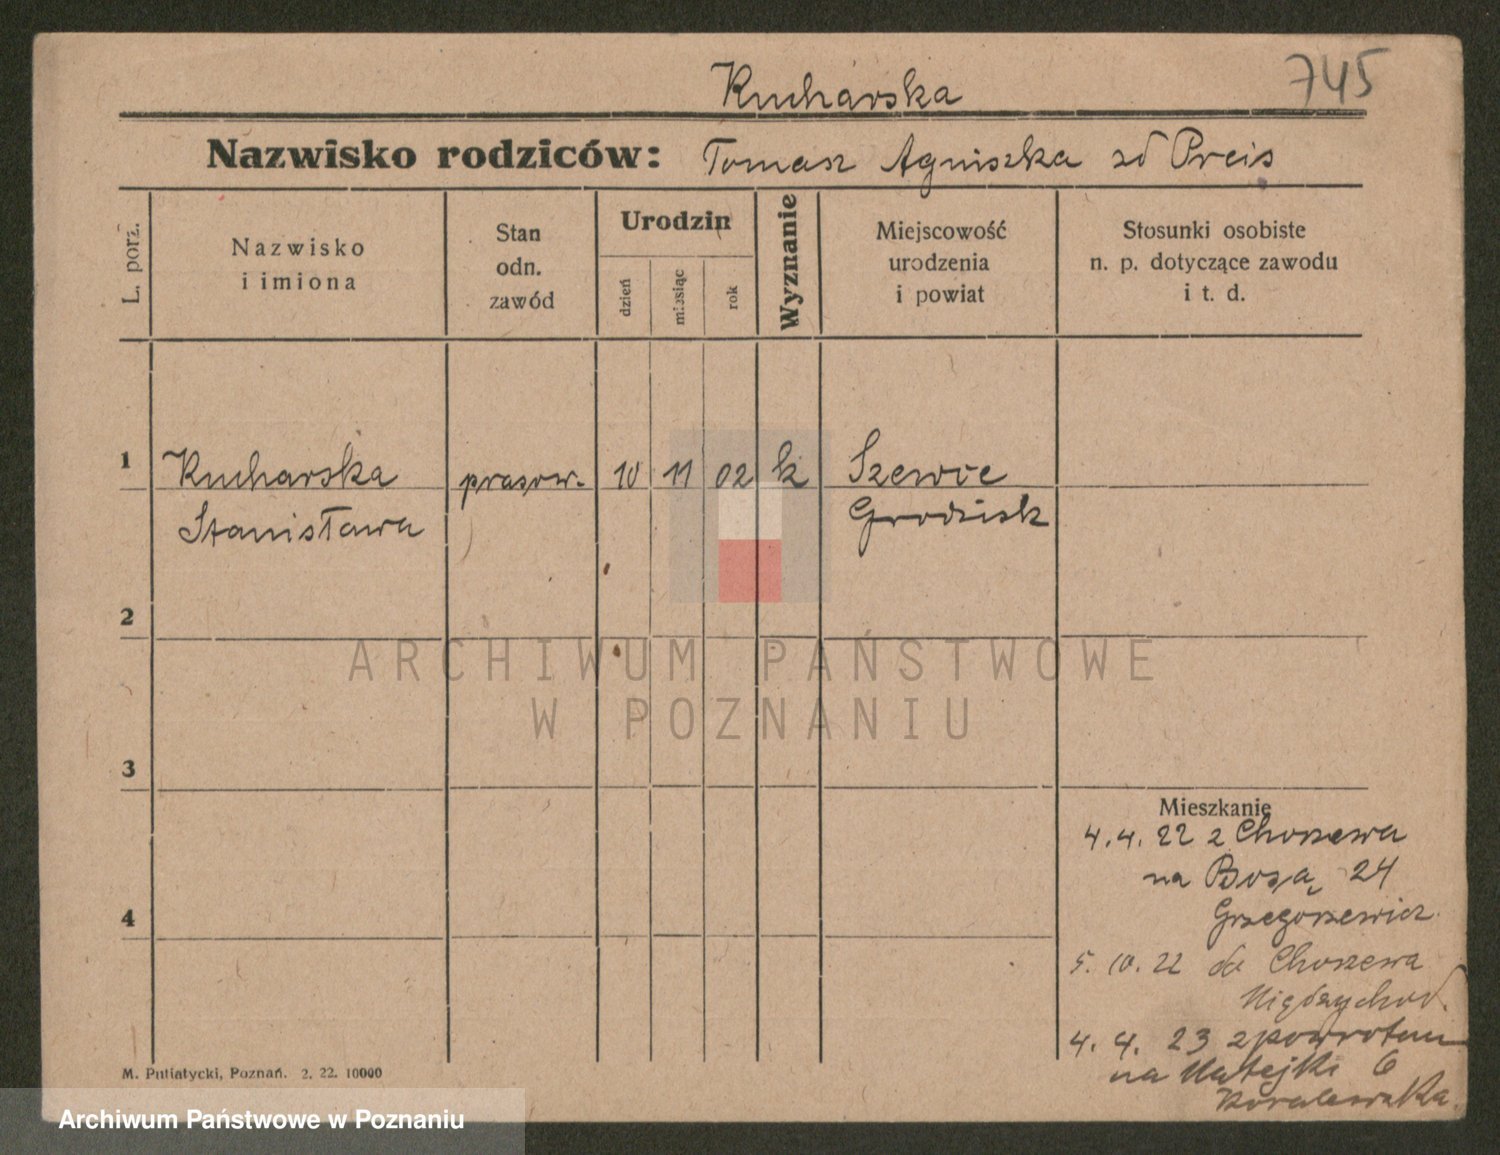 Kucharska
745
Nazwisko rodziców: Tomasz Agniszka zd Preis
L. porz.
Nazwisko
i imiona
Stan
odn.
zawód
Urodzin
dzień
miesiąc
rok
Wyznanie
Miejscowość
urodzenia
i powiat
Stosunki osobiste
n. p. dotyczące zawodu
i t. d.
1
Kucharska
Stanisława
prasow.
10
11
02
k
Szewce
Grodzisk
2
ARCHIWUM PAŃSTWOWE
W POZNANIU
3
4
Mieszkanie
4. 4. 22 z Chorzewa
na Bożą 24
Grzegorzewicz
5. 10. 22 do Chorzewa
Międzychod.
4. 4. 23 zpowrotem
na Matejki 6
Koralewska.
M. Putiatycki, Poznań. 2. 22. 10000
Archiwum Państwowe w Poznaniu